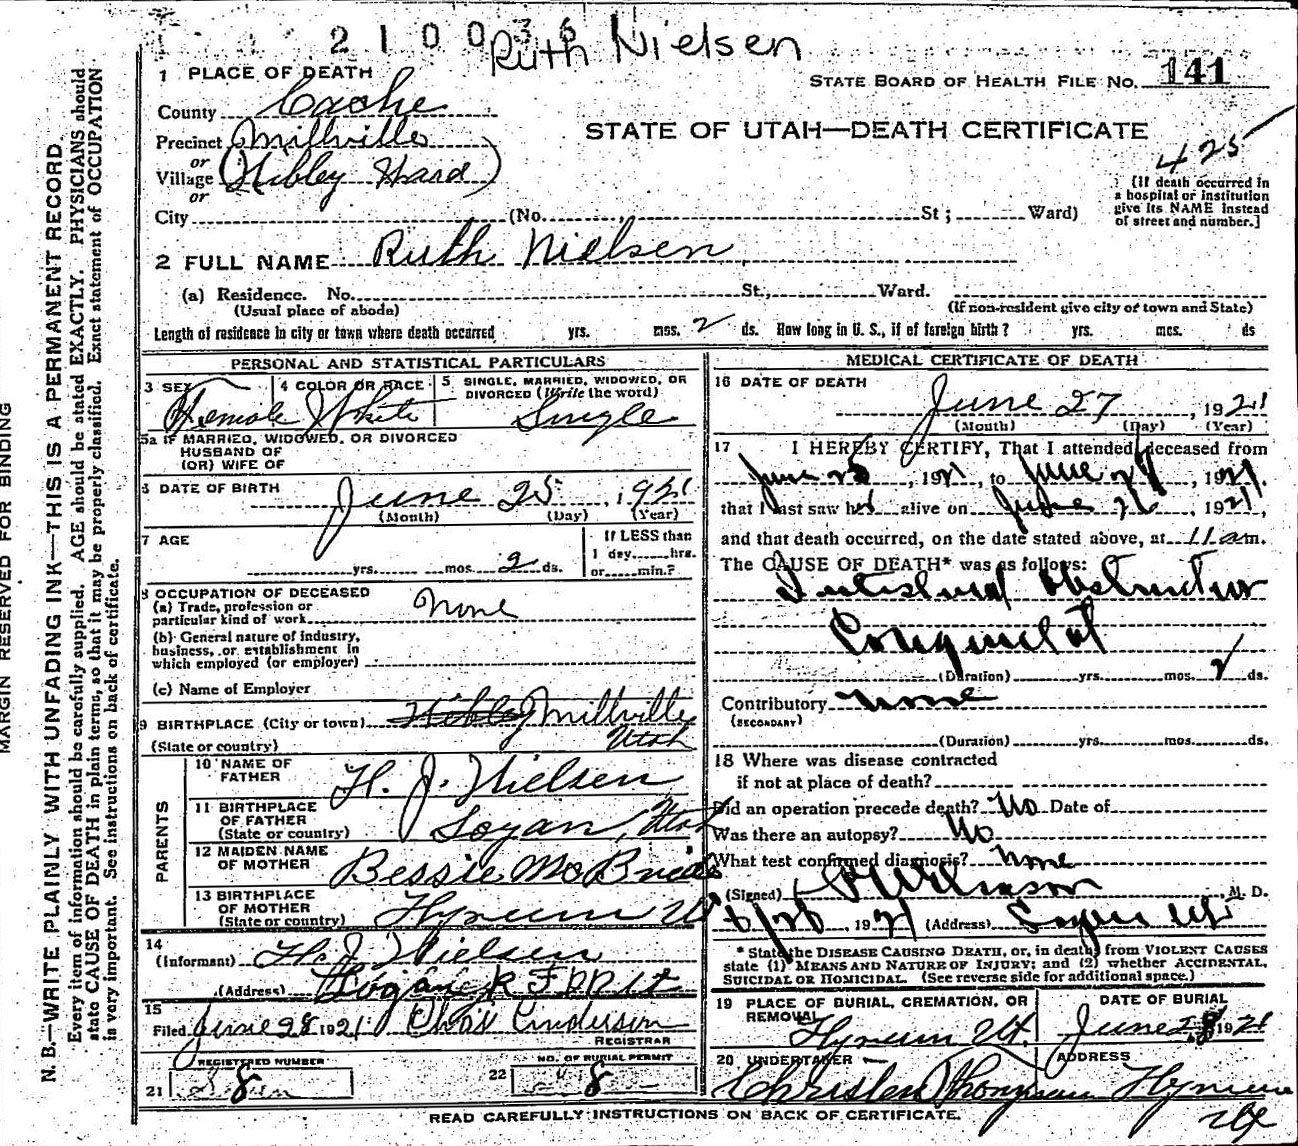 2 1 0 0 3 6
Ruth Nielsen
STATE BOARD OF HEALTH FILE NO. 141
STATE OF UTAH—DEATH CERTIFICATE
425
[If death occurred in
a hospital or institution
give its NAME instead
of street and number.]
1 PLACE OF DEATH
County Cache
Precinct Millville
or
Village (Hibley Ward)
or
City (No. St; Ward)
2 FULL NAME Ruth Nielsen
(a) Residence. No. St., Ward.
(Usual place of abode) (If non-resident give city or town and State)
Length of residence in city or town where death occurred yrs. mos. 2 ds. How long in U. S., if of foreign birth? yrs. mos. ds
PERSONAL AND STATISTICAL PARTICULARS
3 SEX 4 COLOR OR RACE 5 SINGLE, MARRIED, WIDOWED, OR
DIVORCED (Write the word)
Female White Single
5a IF MARRIED, WIDOWED, OR DIVORCED
HUSBAND OF
(OR) WIFE OF
6 DATE OF BIRTH June 25, 1921
(Month) (Day) (Year)
7 AGE If LESS than
1 day hrs.
yrs. mos. 2 ds. or min.?
8 OCCUPATION OF DECEASED
(a) Trade, profession or
particular kind of work None
(b) General nature of industry,
business, or establishment in
which employed (or employer)
(c) Name of Employer
9 BIRTHPLACE (City or town) Hibley Millville
(State or country) Utah
PARENTS
10 NAME OF
FATHER H. J. Nielsen
11 BIRTHPLACE
OF FATHER
(State or country) Logan, Utah
12 MAIDEN NAME
OF MOTHER Bessie McBride
13 BIRTHPLACE
OF MOTHER
(State or country) Hyrum Ut
14
(Informant) H. J. Nielsen
(Address) Logan R F D Ut
15
Filed June 28 1921 Chas Anderson
REGISTRAR
REGISTERED NUMBER NO. OF BURIAL PERMIT
21 8 22 8
MEDICAL CERTIFICATE OF DEATH
16 DATE OF DEATH
June 27, 1921
(Month) (Day) (Year)
17 I HEREBY CERTIFY, That I attended deceased from
June 25, 1921, to June 27, 1921.
that I last saw her alive on June 26, 1921,
and that death occurred, on the date stated above, at 11 am.
The CAUSE OF DEATH* was as follows:
Intestinal Obstruction
Congenital
(Duration) yrs. mos. 2 ds.
Contributory none
(SECONDARY)
(Duration) yrs. mos. ds.
18 Where was disease contracted
if not at place of death?
Did an operation precede death? No Date of
Was there an autopsy? No
What test confirmed diagnosis? none
(Signed) M. D.
6/28, 1921 (Address) Logan Ut
* State the DISEASE CAUSING DEATH, or, in deaths from VIOLENT CAUSES
state (1) MEANS AND NATURE OF INJURY; and (2) whether ACCIDENTAL,
SUICIDAL OR HOMICIDAL. (See reverse side for additional space.)
19 PLACE OF BURIAL, CREMATION, OR
REMOVAL DATE OF BURIAL
Hyrum Ut. June 28 1921
20 UNDERTAKER ADDRESS
Christen Thompson Hyrum
Ut
READ CAREFULLY INSTRUCTIONS ON BACK OF CERTIFICATE.
MARGIN RESERVED FOR BINDING
N. B.—WRITE PLAINLY WITH UNFADING INK—THIS IS A PERMANENT RECORD
Every item of information should be carefully supplied. AGE should be stated EXACTLY. PHYSICIANS should
state CAUSE OF DEATH in plain terms, so that it may be properly classified. Exact statement of OCCUPATION
is very important. See instructions on back of certificate.